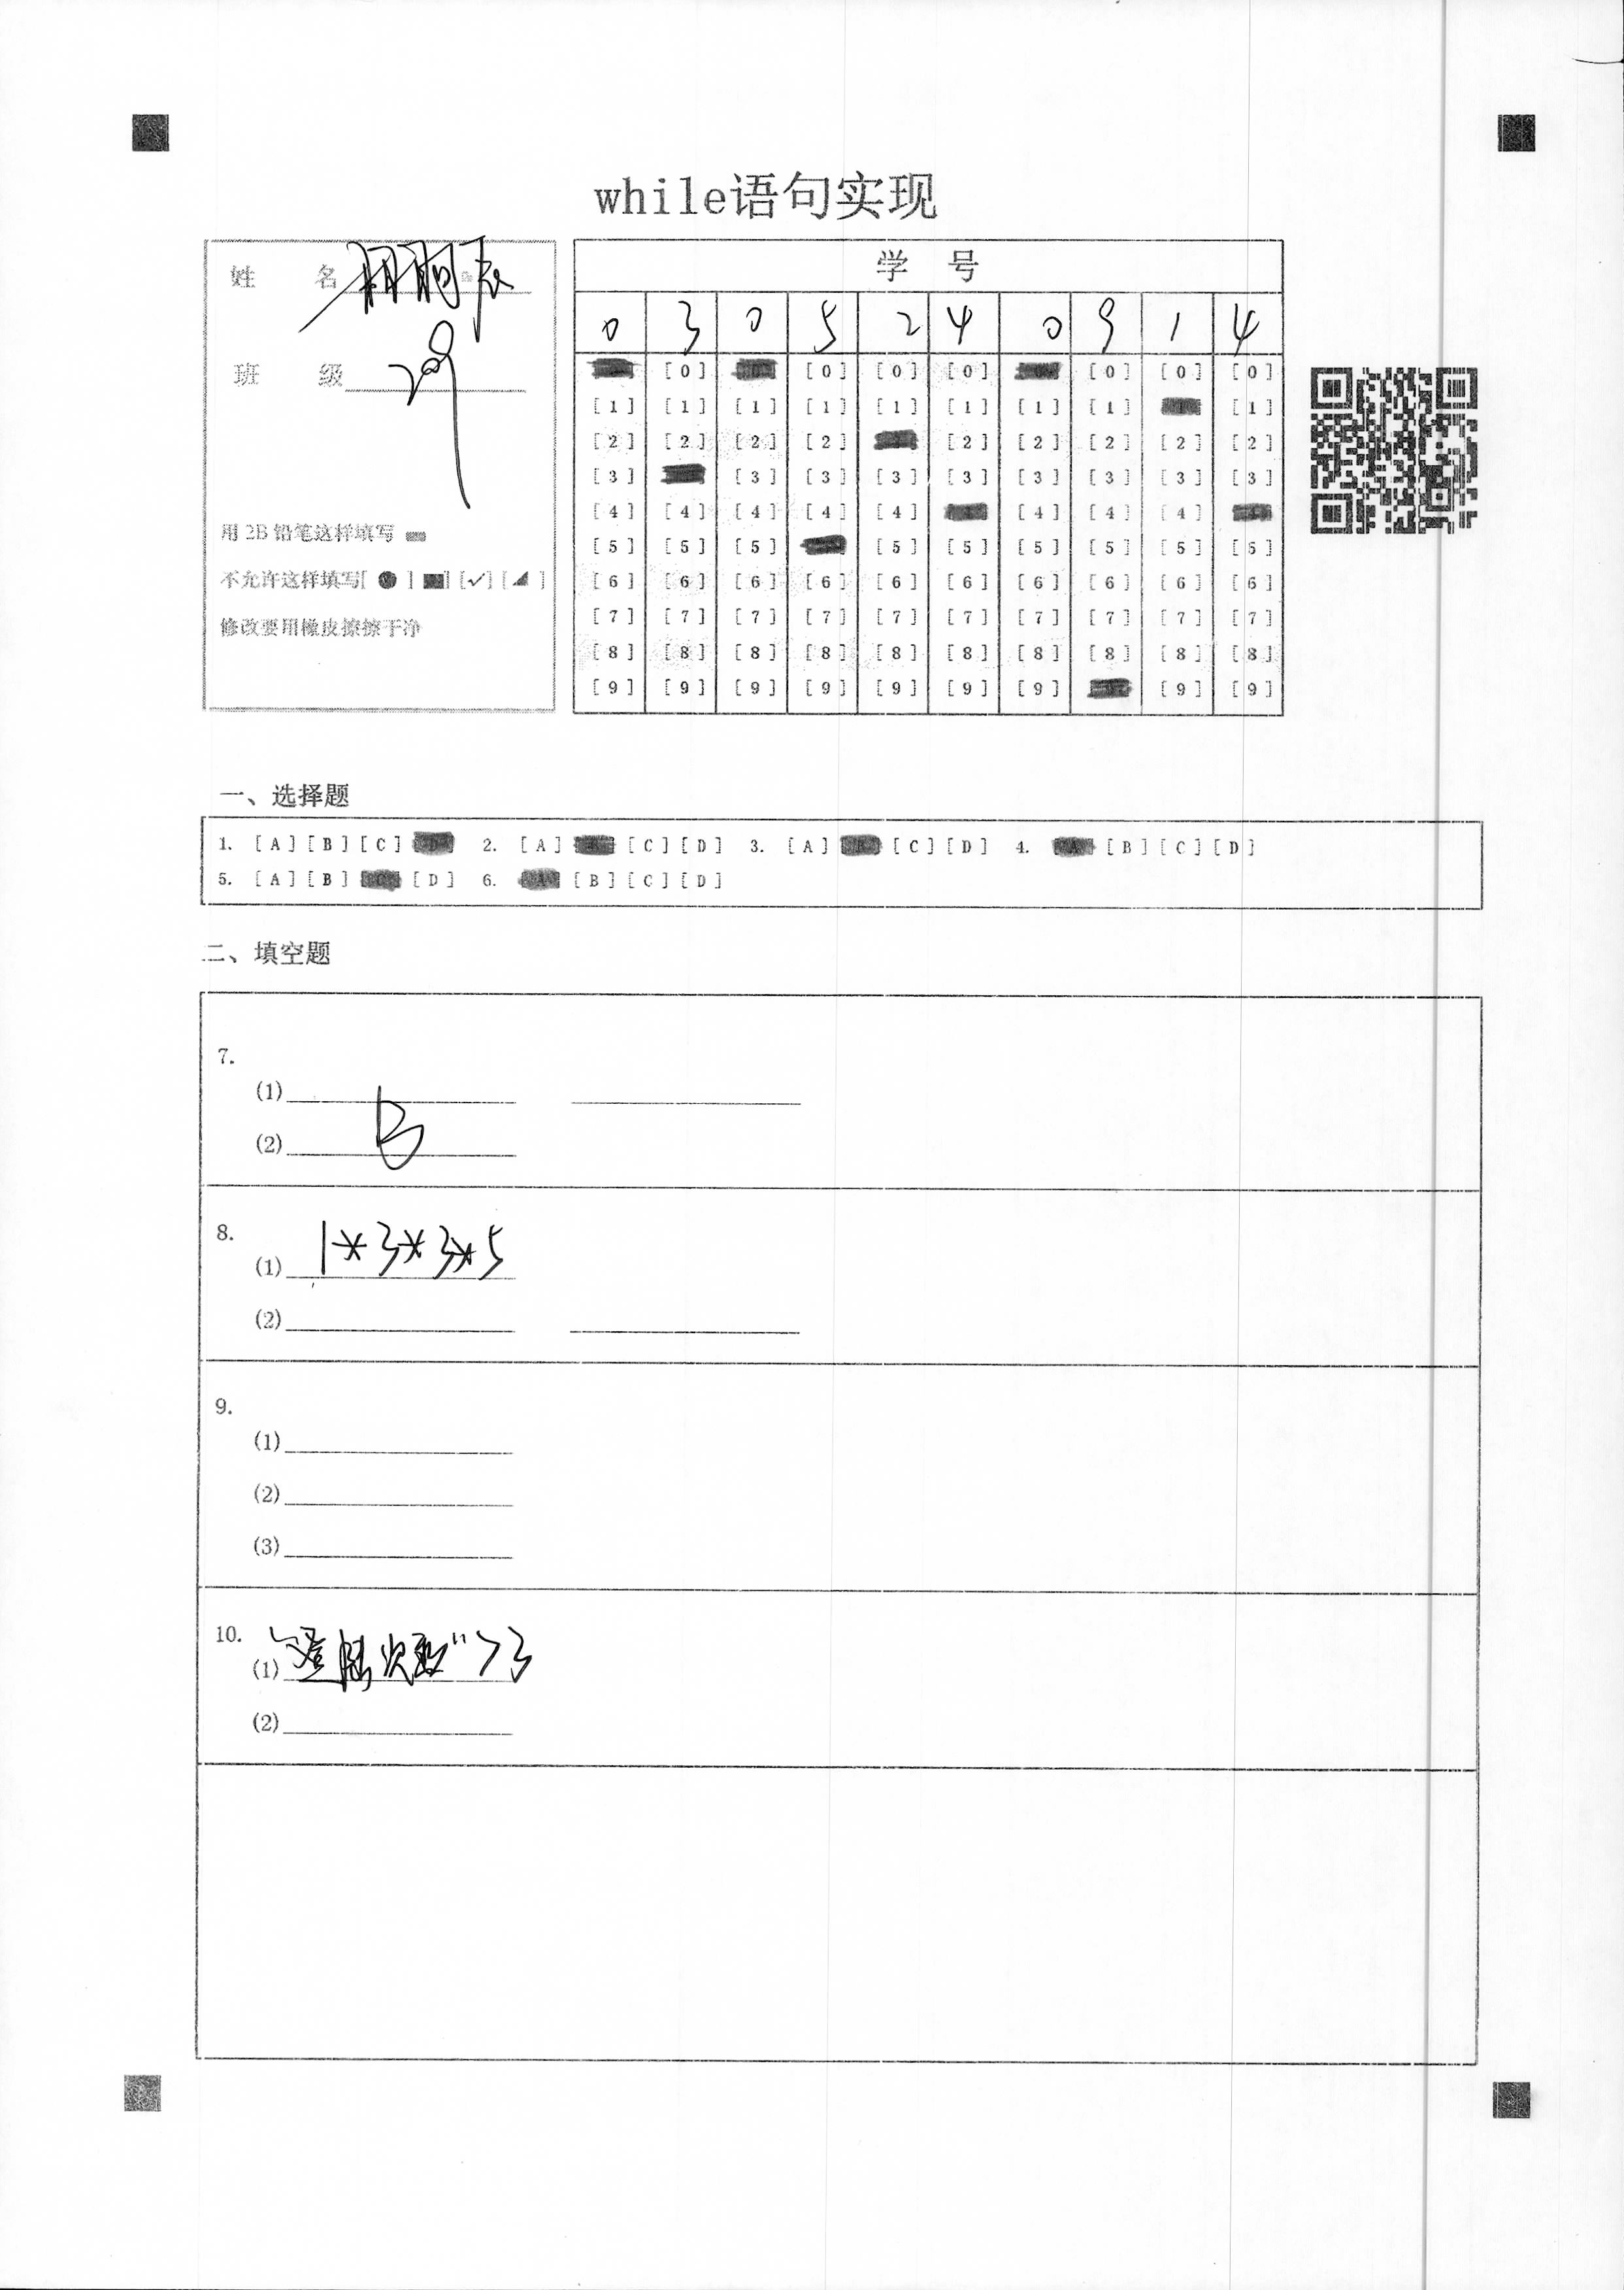 while语句实现
姓 名
班 级 209
用 2B 铅笔这样填写
不允许这样填写[ ● ] [■] [✓] [◢ ]
修改要用橡皮擦擦干净
学 号
0 3 0 5 2 4 0 9 1 4
[0] [0] [0] [0] [0] [0] [0]
[1] [1] [1] [1] [1] [1] [1] [1] [1]
[2] [2] [2] [2] [2] [2] [2] [2] [2]
[3] [3] [3] [3] [3] [3] [3] [3] [3]
[4] [4] [4] [4] [4] [4] [4] [4]
[5] [5] [5] [5] [5] [5] [5] [5] [5]
[6] [6] [6] [6] [6] [6] [6] [6] [6] [6]
[7] [7] [7] [7] [7] [7] [7] [7] [7] [7]
[8] [8] [8] [8] [8] [8] [8] [8] [8] [8]
[9] [9] [9] [9] [9] [9] [9] [9] [9]
一、选择题
1. [A] [B] [C] [D] 2. [A] [B] [C] [D] 3. [A] [B] [C] [D] 4. [A] [B] [C] [D]
5. [A] [B] [C] [D] 6. [A] [B] [C] [D]
二、填空题
7.
(1)
(2) B
8.
(1) 1*3*3*5
(2)
9.
(1)
(2)
(3)
10.
(1) "登陆次数">3
(2)